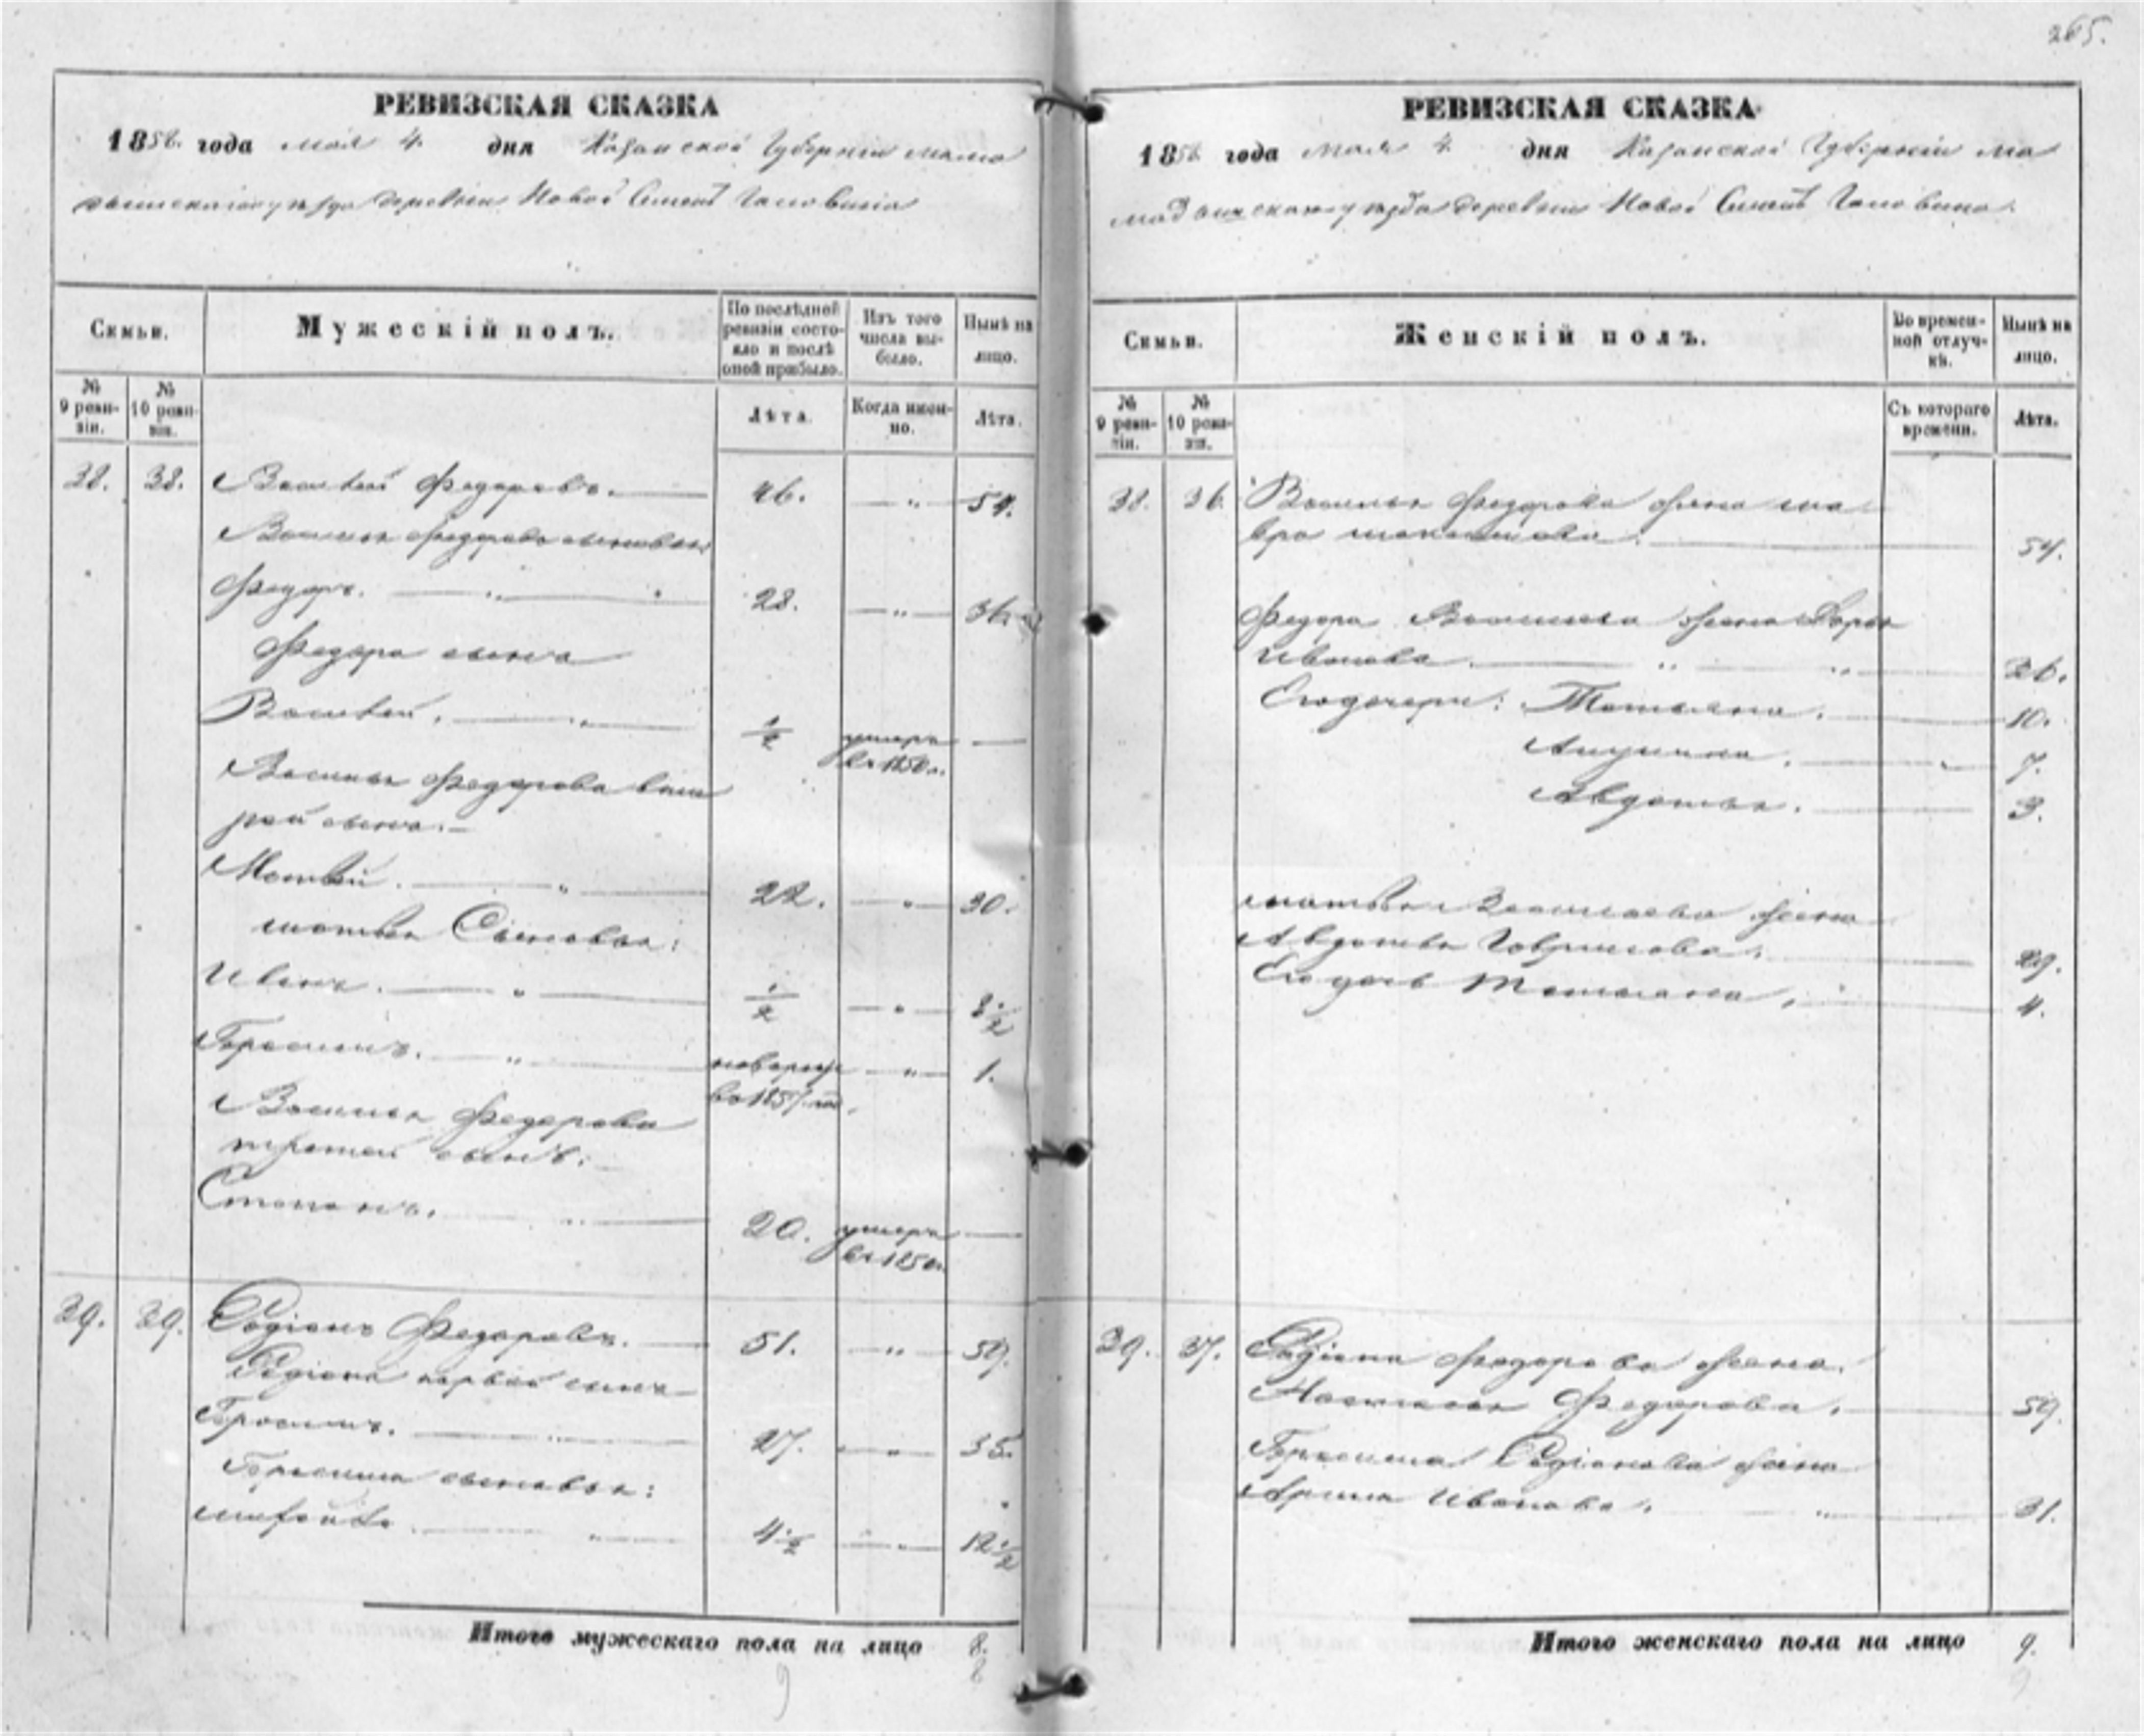 265.
РЕВИЗСКАЯ СКАЗКА
1858. года мая 4. дня Казанской Губернiи мама
дышскаго уѣзда деревни Новой
Семьи.
Мужескiй полъ.
По послѣдней ревизiи состояло и послѣ оной прибыло.
Изъ того числа выбыло.
Нынѣ на лицо.
№ 9 ревизiи.
№ 10 ревизiи.
Лѣта.
Когда именно.
Лѣта.
38. 38. Василей Федоровъ. 46. — " — 54.
Василья Федорова сыновья
Федоръ. — " 28. — " — 36
Федора сынъ
Василей. — " 1/2 умеръ —
въ 1850 г.
Василья Федорова вто
рой сынъ. —
Матвѣй. — " 22. — " — 30.
Матвѣя Сыновья:
Иванъ. — " 1/2 — " — 8 1/2
Герасимъ. — " новорож — " — 1.
въ 1857
Василья Федорова
третей сынъ:
Степанъ. " 20. умеръ —
въ 1850
39. 39. Родiонъ Федоровъ. — 51. " 59.
Родiона первой сынъ
Герасимъ. — " 27. — " 35.
Герасима сыновья:
" 4 1/2 — " — 12 1/2
Итого мужескаго пола на лицо 8.
РЕВИЗСКАЯ СКАЗКА
1858 года мая 4. дня Казанской Губернiи ма
мадышскаго уѣзда деревни Новой
Семьи.
Женскiй полъ.
Во временной отлучкѣ.
Нынѣ на лицо.
№ 9 ревизiи.
№ 10 ревизiи.
Съ котораго времени.
Лѣта.
38. 36. Василья Федорова жена ма
вра 54.
Федора Васильева жена Дарья
Иванова. — " — " 36.
Его дочери: Татьяна. 10.
Акулина. " 7.
Авдотья. 3.
Матвѣя Васильева жена
Авдотья Гаврилова. 29.
Его дочь Татьяна. 4.
39. 37. Родiона Федорова жена.
Настасья Федорова. 59.
Герасима Родiонова жена
Арина Иванова. " 31.
Итого женскаго пола на лицо 9.